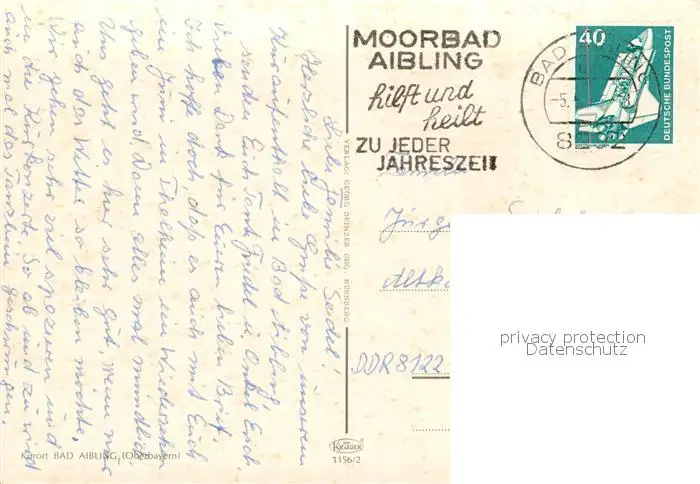 MOORBAD
AIBLING
hilft und
heilt
ZU JEDER
JAHRESZEIT
BAD
-5.
82 2
40
DEUTSCHE BUNDESPOST
Liebe Familie Seidel!
Herzliche liebe Grüße von unserem
Kuraufenthalt in Bad Aibling
senden Euch Tante Friedel u. Onkel Erich
Vielen Dank für Euren lieben Brief.
Ich hoffe doch, daß es auch mit Euch
im Juni in ein Wiedersehn
geben wird, denn alles mal mündlich.
Uns geht es hier sehr gut, wenn nur
auch das Wetter so bleiben möchte.
Wir gehen sehr viel spazieren und
in die Kurkonzerte. So ab und zu wird
auch mal das Tanzbein geschwungen.
VERLAG: GEORG DEINZER OHG. NÜRNBERG
Jürg
Altko
DDR 8122
Kurort BAD AIBLING (Oberbayern)
KRÜGER
1156/2
privacy protection
Datenschutz